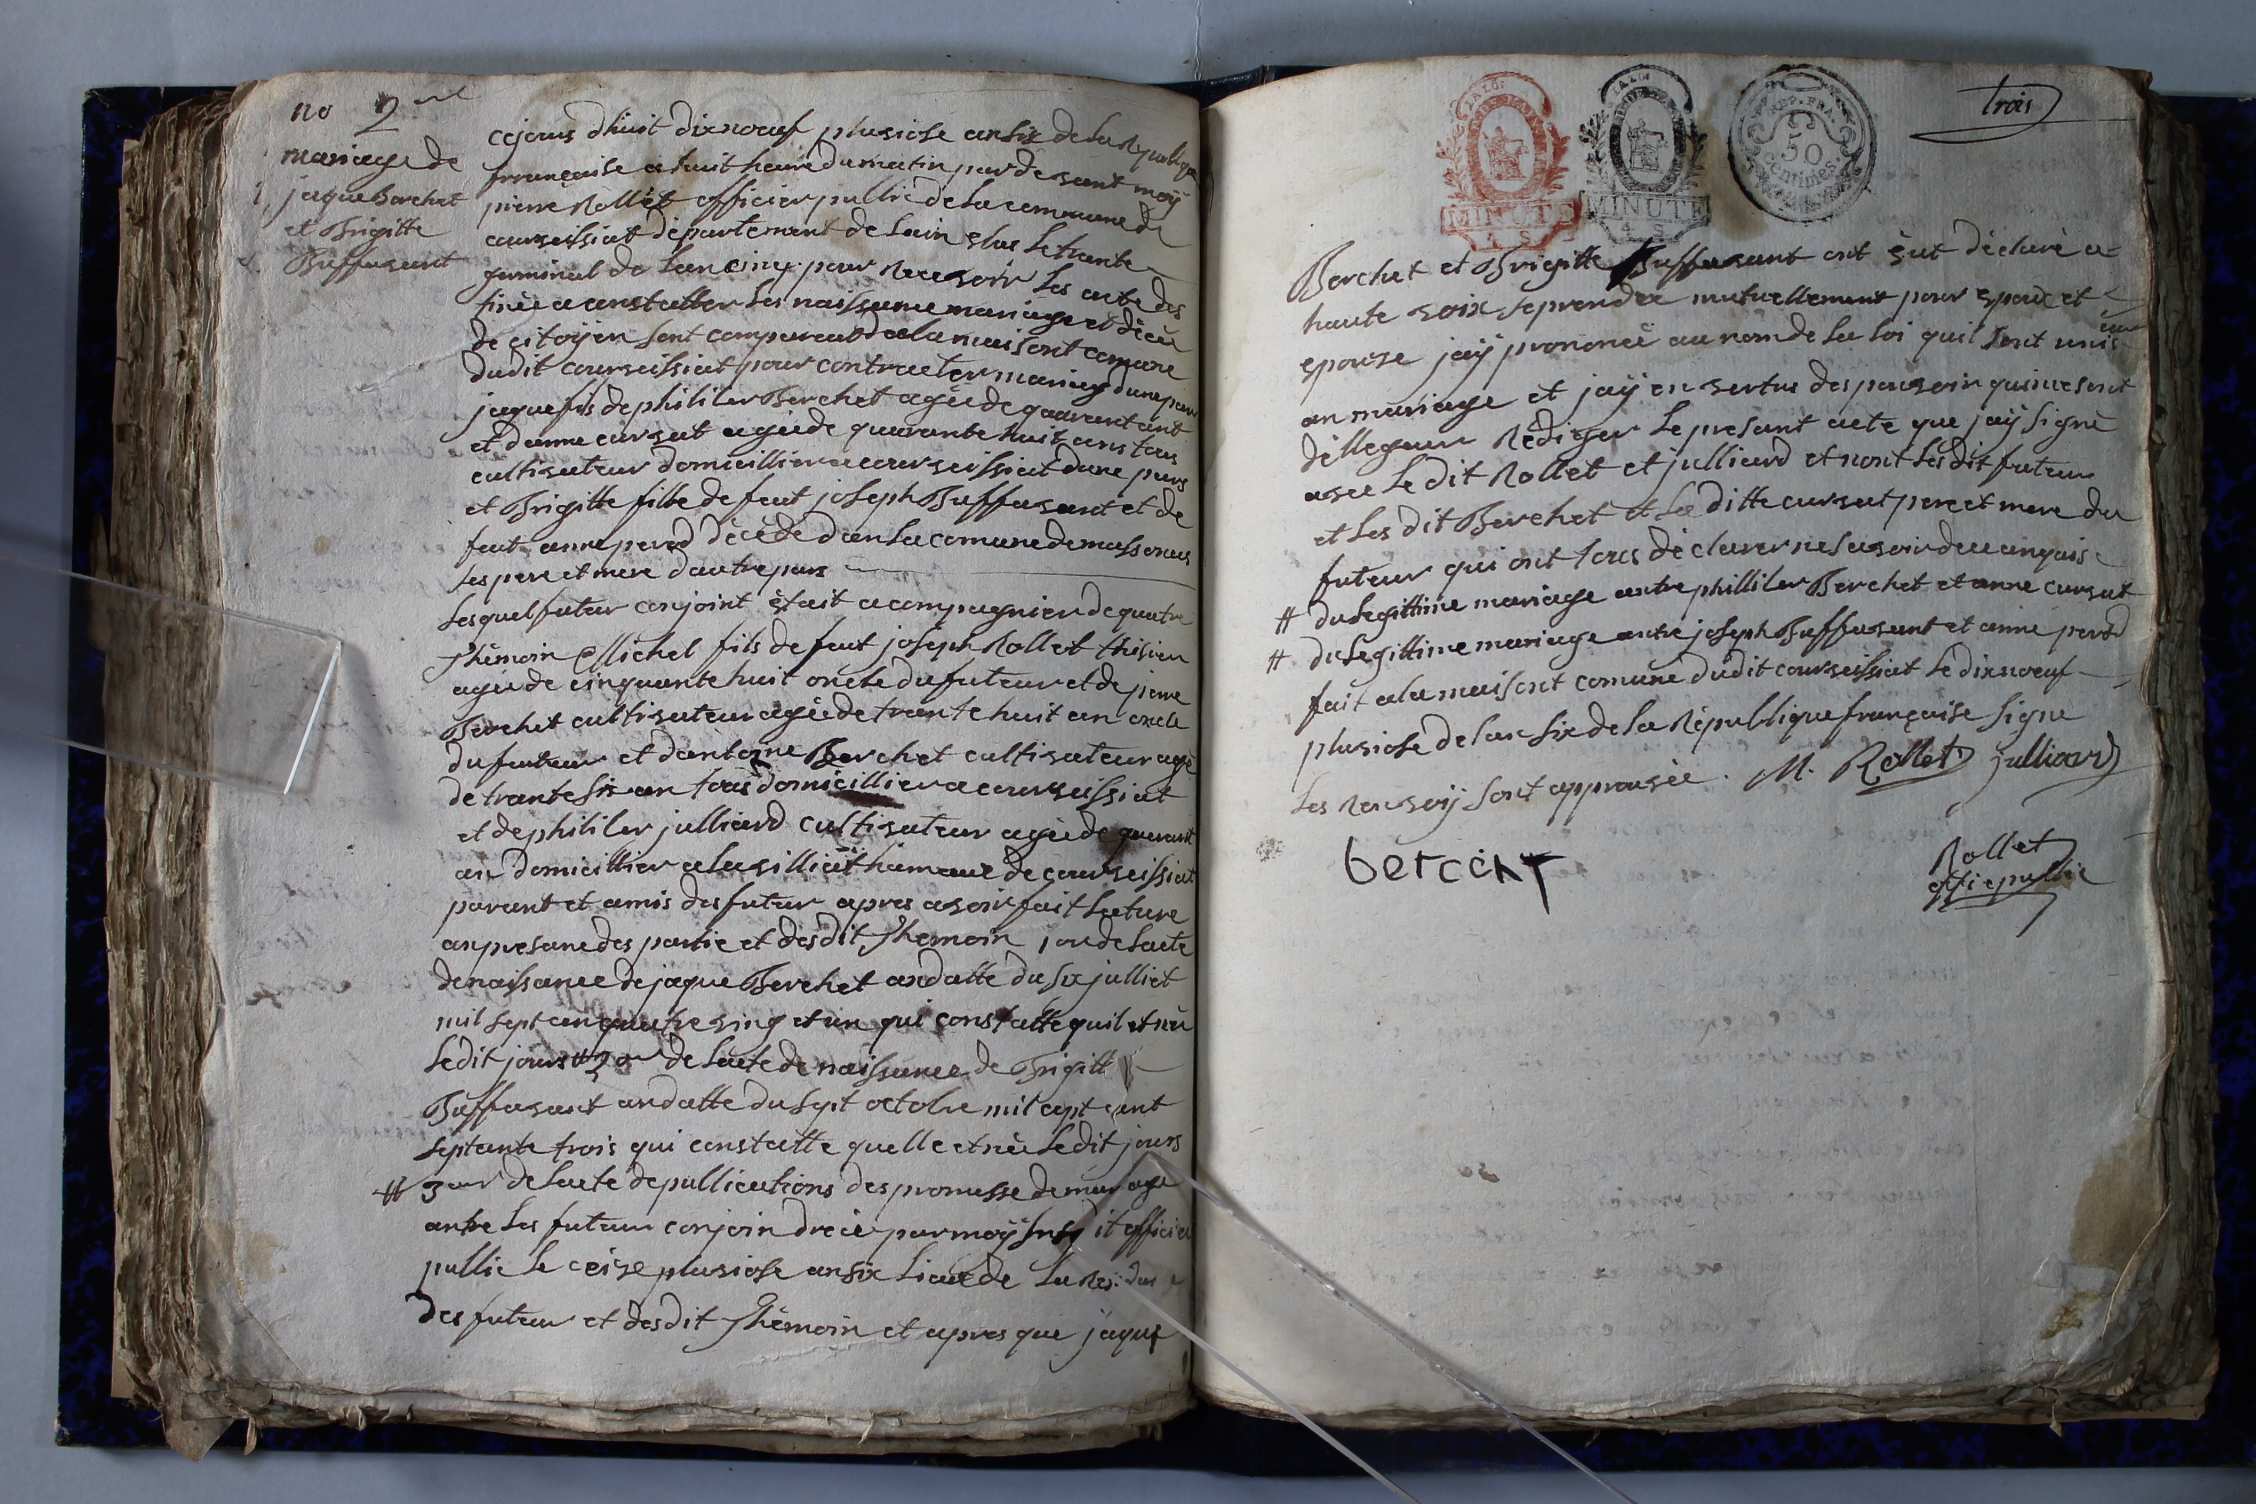 no 2
mariage de
jaque Berchet
et Brigitte
Buffavant
cejours dhuit dixnoeuf pluviose an six de la Republique
françoise a huit heure du matin par devant moÿ
pierre Rollet officier public de la commune de
courveissiat département de lain élus le trante
germinal de lan cinq pour Recevoir les acte des
tinée a constatter les naissance mariage et décéé
de citoÿen sont comparut dala maisont comune
dudit courveissiat pour contracter mariage dune part
jaque fils de philiber Berchet agée de quarant ant
et danne cursat agéé de quarante huit ans tous
cultivateur domicillier a courveissiat dune pars
et Brigitte fille de feut joseph Buffavant et de
feut anne perod décédé dan la comune demassoneus
ses pere et mere dautre pars
lesquel futur conjoint était acompagnier de quatre
themoin Michel fils de feut joseph Rollet thisien
agée de cinquante huit oncle du futeur et de pierre
Berchet cultivateur agéé de trante huit an oncle
du futeur et dantoine Berchet cultivateur agé
de trante six an tous domicillier a courveissiat
et de philiber julliard cultivateur agée de quarant
an domicillier a la villiat hamaue de courveissiat
parant et amis des futur apres avoir fait lecture
an presance des partie et desdit themoin 1 ou de lacte
de naissance de jaque Berchet an datte du six julliet
mil sept can quatre ving et un qui constatte quil et née
ledit jours # 2 ou de lacte de naissance de Brigitt
Buffavant an datte du sept octobre mil cept cent
septante trois qui constatte quelle et née ledit jours
# 3 eur de lacte de publications des promesse de mariage
antre les futeur conjoin drecé par moÿ susdit officier
public le ceize pluviose an six
des futeur et desdit themoin et apres que jaque
trois
LA LOI
MINUTE
4 S
LA LOI
MINUTE
4 S
REP. FRA.
50
centimes.
Berchet et Brigitte Buffavant ont éut déclaré a
haute voix se prendre mutuellement pour epoux et
epouse jaÿ prononcé au nom de la loi quil sont unis
en
an mariage et jaÿ en vertus des pouvoir qui me sont
déllegueur Rédiger le presant acte que jaÿ signé
avec le dit Rollet et julliard et nont lesdit futeur
et les dit Berchet et la ditte cursat pere et mere du
futeur qui ont tous déclarer ne savoir de ce anquis
# du legittime mariage antre philliber Berchet et anne cursat
# du legittime mariage antre joseph Buffavant et anne perod
fait a la maisont comune dudit courveissiat le dixnoeuf
pluviose de lan six de la République françoise signe
les Ranvoÿ sont approuvée. M. Rollet Julliard
berceht
Rollet
offie public